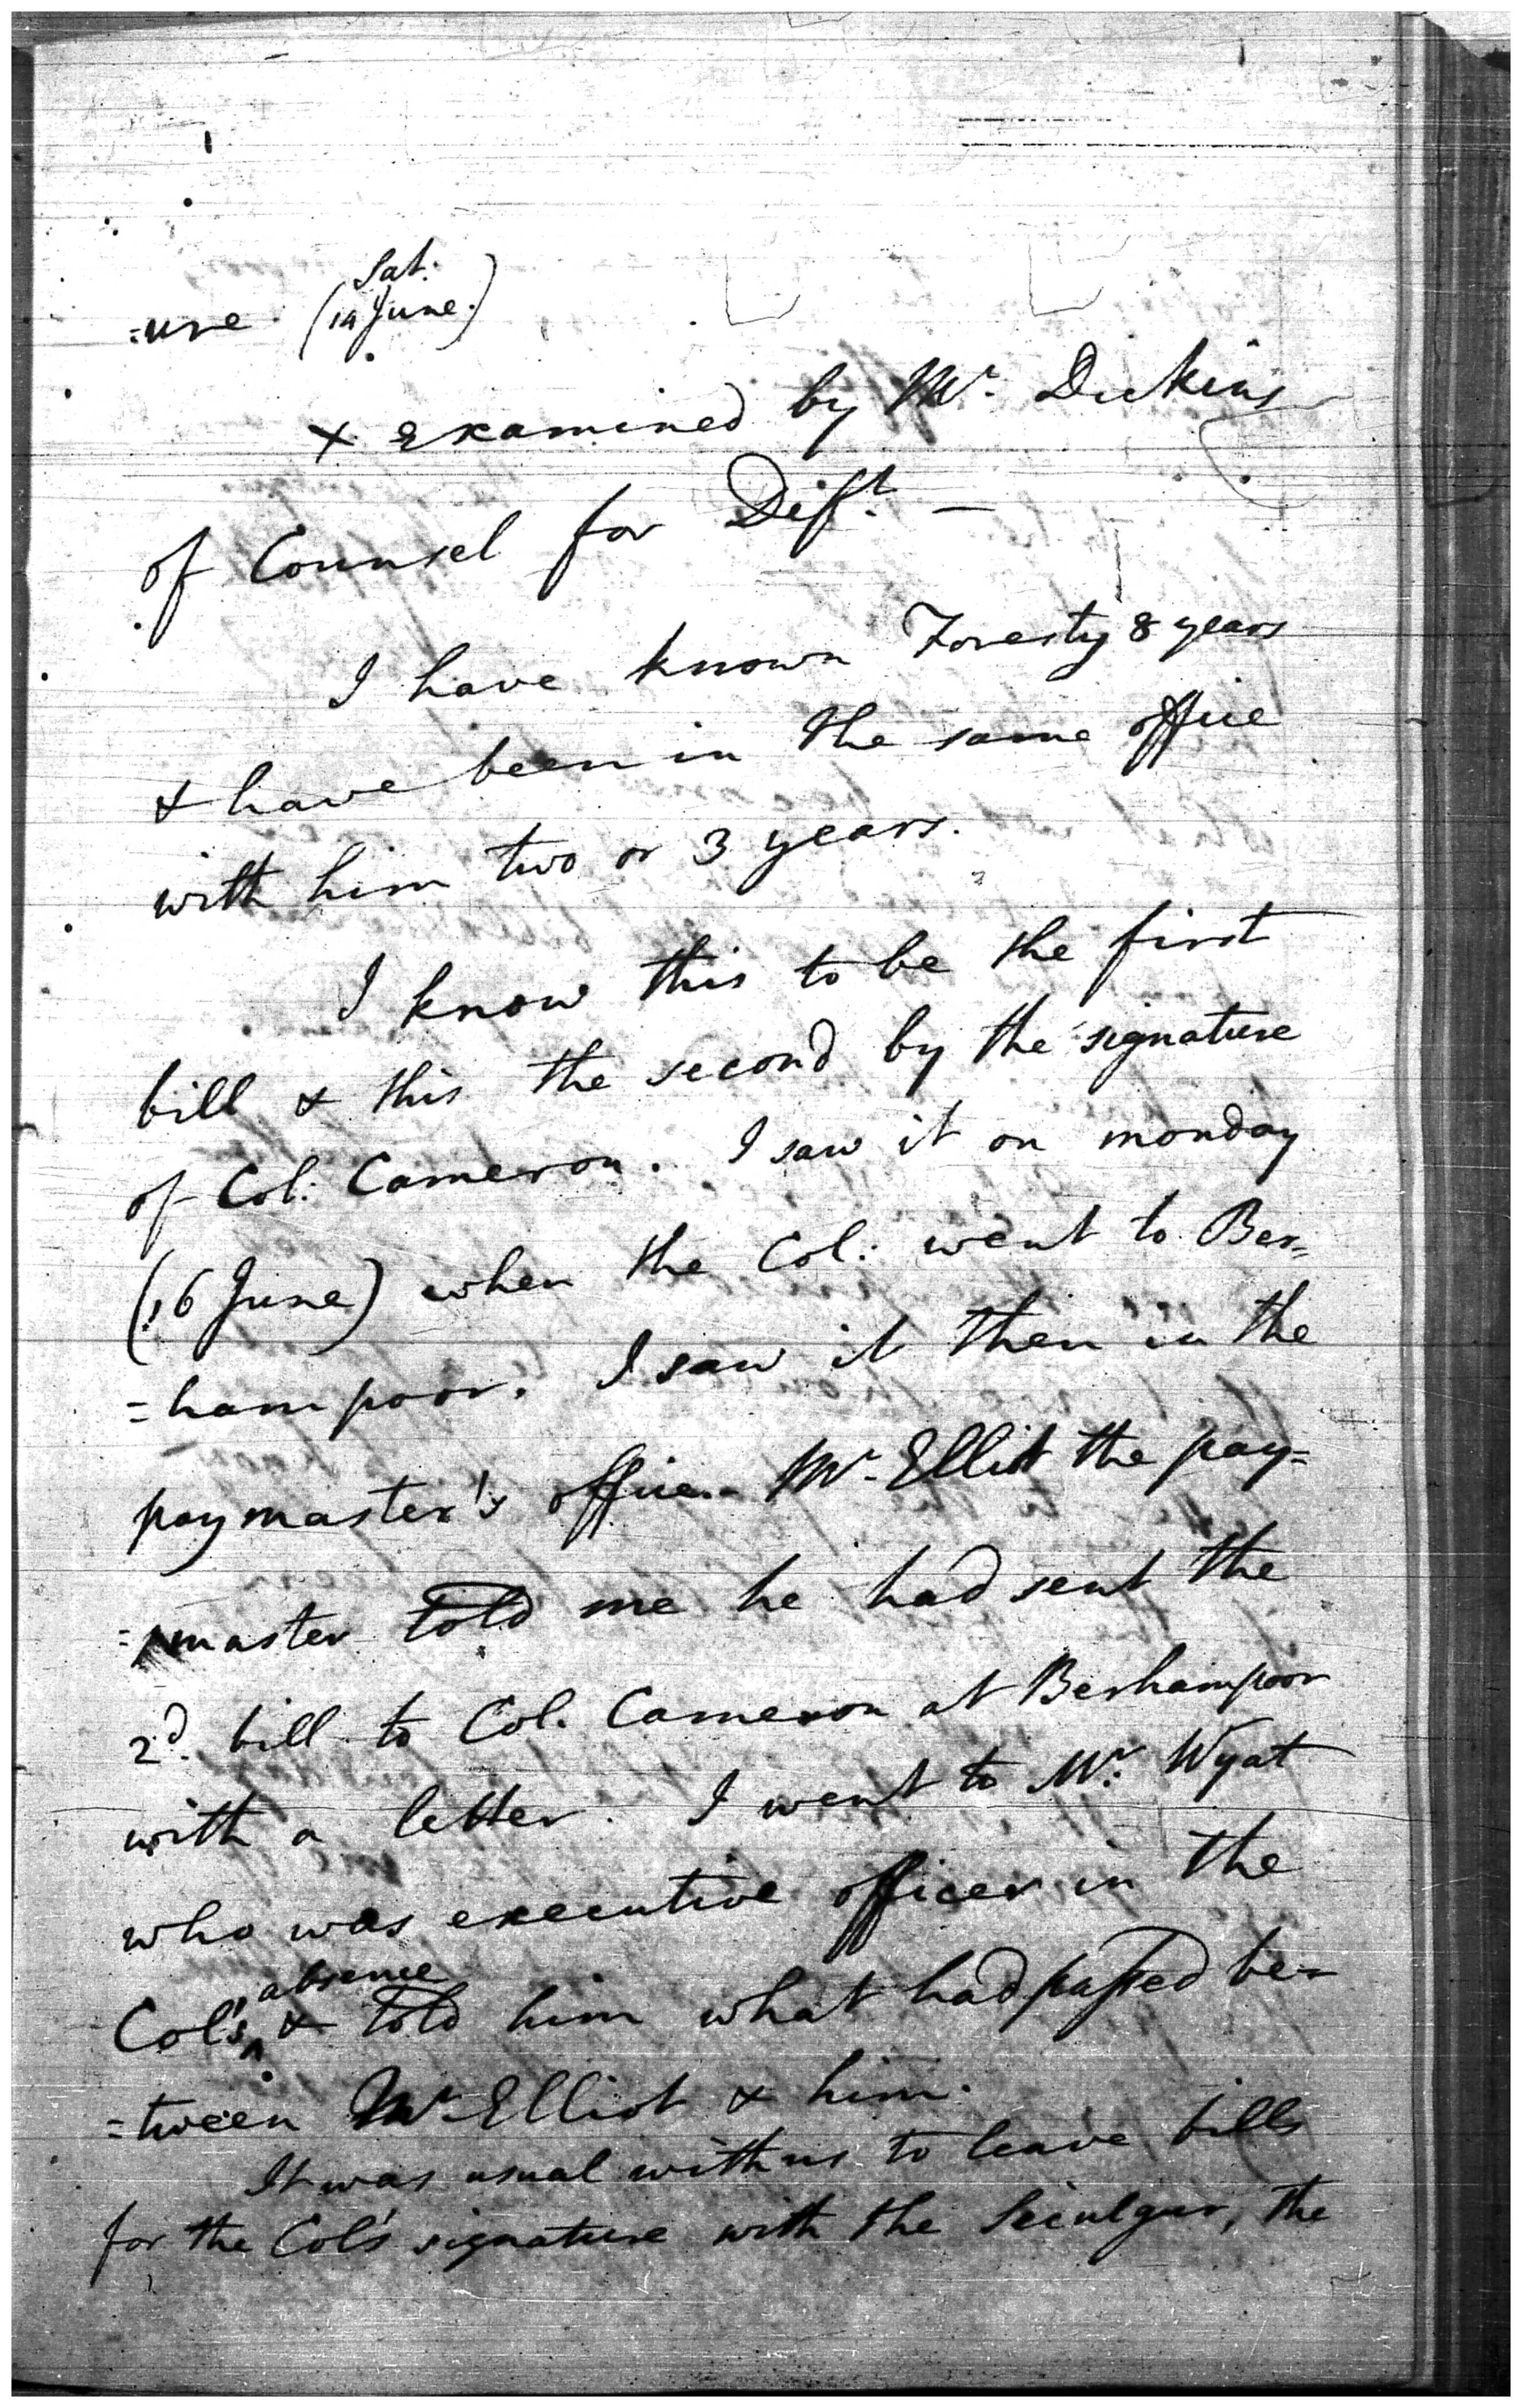 =ure. (Sat: 14 June.)
x examined by Mr. Dickens
of Counsel for Deft. —
I have known Foresty 8 years
& have been in the same office
with him two or 3 years.
I know this to be the first
bill & this the second by the signature
of Col: Cameron. I saw it on monday
(16 June) when the Col: went to Ber=
=hampoor. I saw it then in the
paymaster's office. Mr. Elliot the pay=
=master told me he had sent the
2d. bill to Col. Cameron at Berhampoor
with a letter. I went to Mr. Wyat
who was executive officer in the
Col's absence & told him what had passed be=
=tween Mr Elliot & him.
It was usual with us to leave bills
for the Col's signature with the the